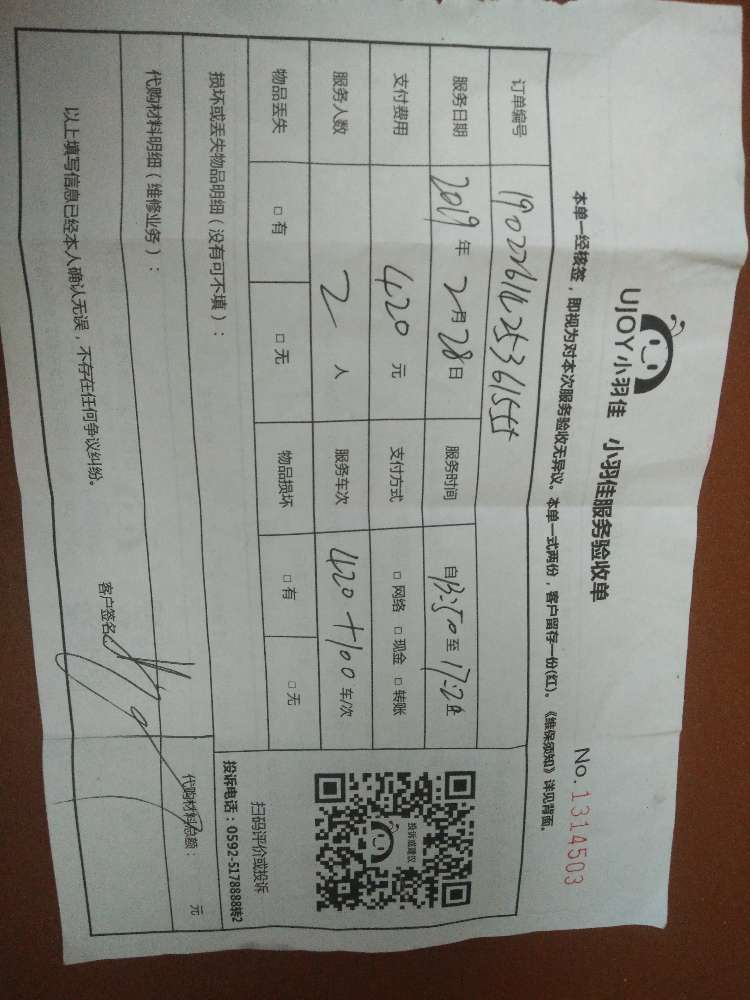 UJOY小羽佳 小羽佳服务验收单
No.1314503
本单一经核签，即视为对本次服务验收无异议。本单一式两份，客户留存一份(红)。《维保须知》详见背面。
订单编号
服务日期 2019年2月28日 服务时间 自13:50至17:20止
支付费用 420元 支付方式 □网络 □现金 □转账
服务人数 2人 服务车次 420+100车/次
物品丢失 □有 □无 物品损坏 □有 □无
投诉或建议
扫码评价或投诉
投诉电话：0592-5178888转2
损坏或丢失物品明细（没有可不填）：
代购材料明细（维修业务）： 代购材料总额： 元
以上填写信息已经本人确认无误，不存在任何争议纠纷。
客户签名